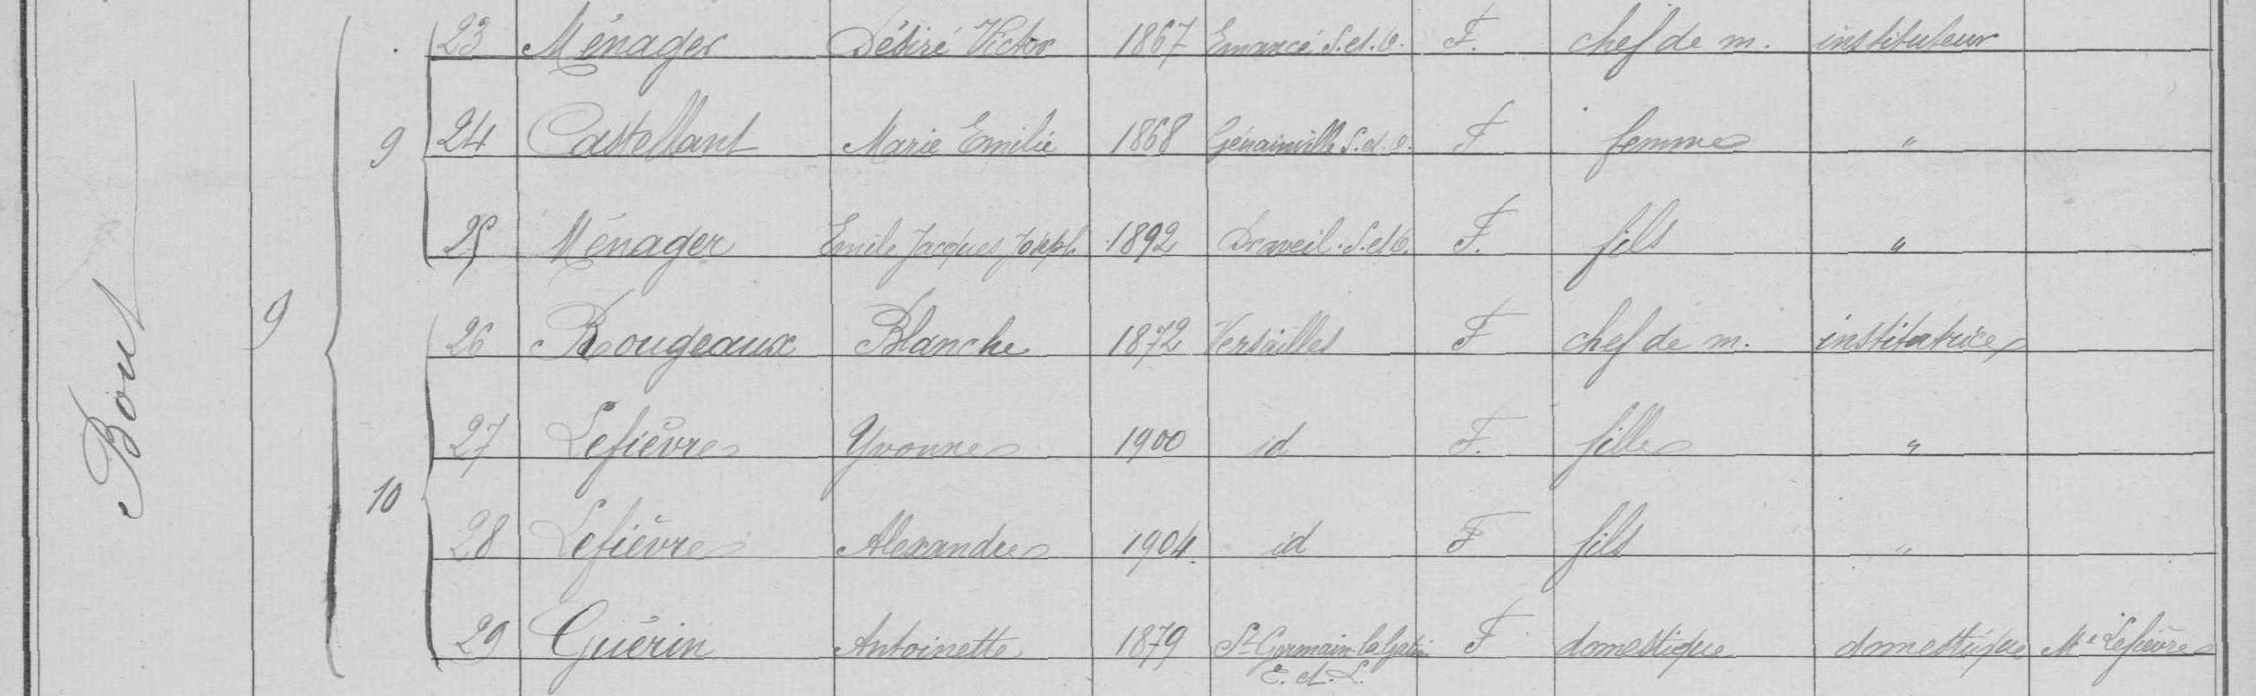 Bout
9
23 Ménager Désiré Victor 1867 Emancé S.et.O. F. chef de m. instituteur
9 24 Castellant Marie Emilie 1868 Génainville S.et.O. F femme "
25 Ménager Emile Jacques Joseph 1892 Draveil S.et O. F. fils "
26 Rougeaux Blanche 1872 Versailles F chef de m. institutrice
27 Lefièvre Yvonne 1900 id F. fille "
10
28 Lefièvre Alexandre 1904 id F fils "
29 Guérin Antoinette 1879 St Germain la Gatine F domestique domestique Me Lefièvre
E. et. L.